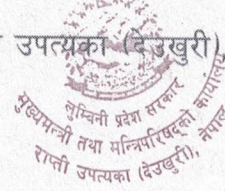 उपत्यका (देउखुरी),
लुम्बिनी प्रदेश सरकार
मुख्यमन्त्री तथा मन्त्रिपरिषद्को कार्यालय
राप्ती उपत्यका (देउखुरी), नेपाल